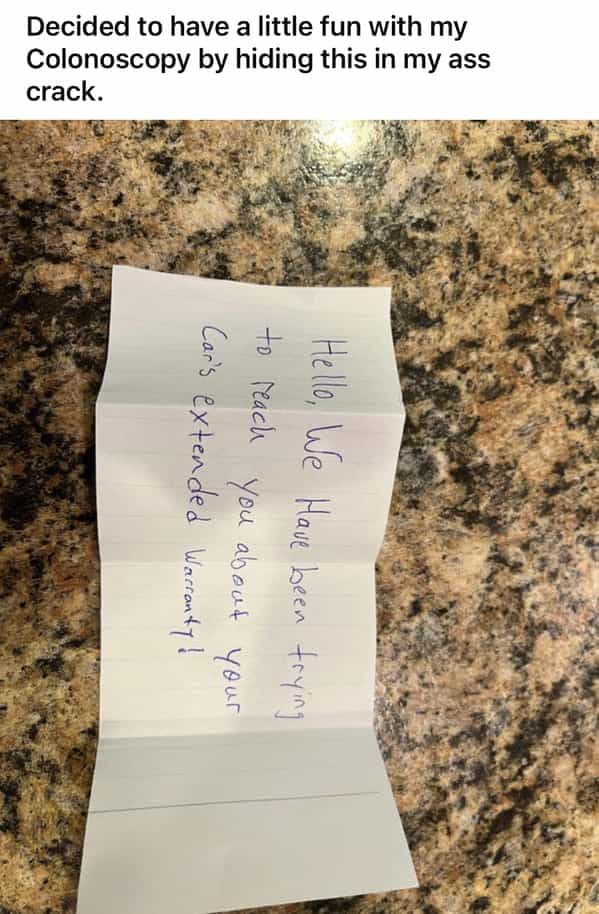 Decided to have a little fun with my
Colonoscopy by hiding this in my ass
crack.
Hello, We Have been trying
to reach you about your
Car's extended Warranty!